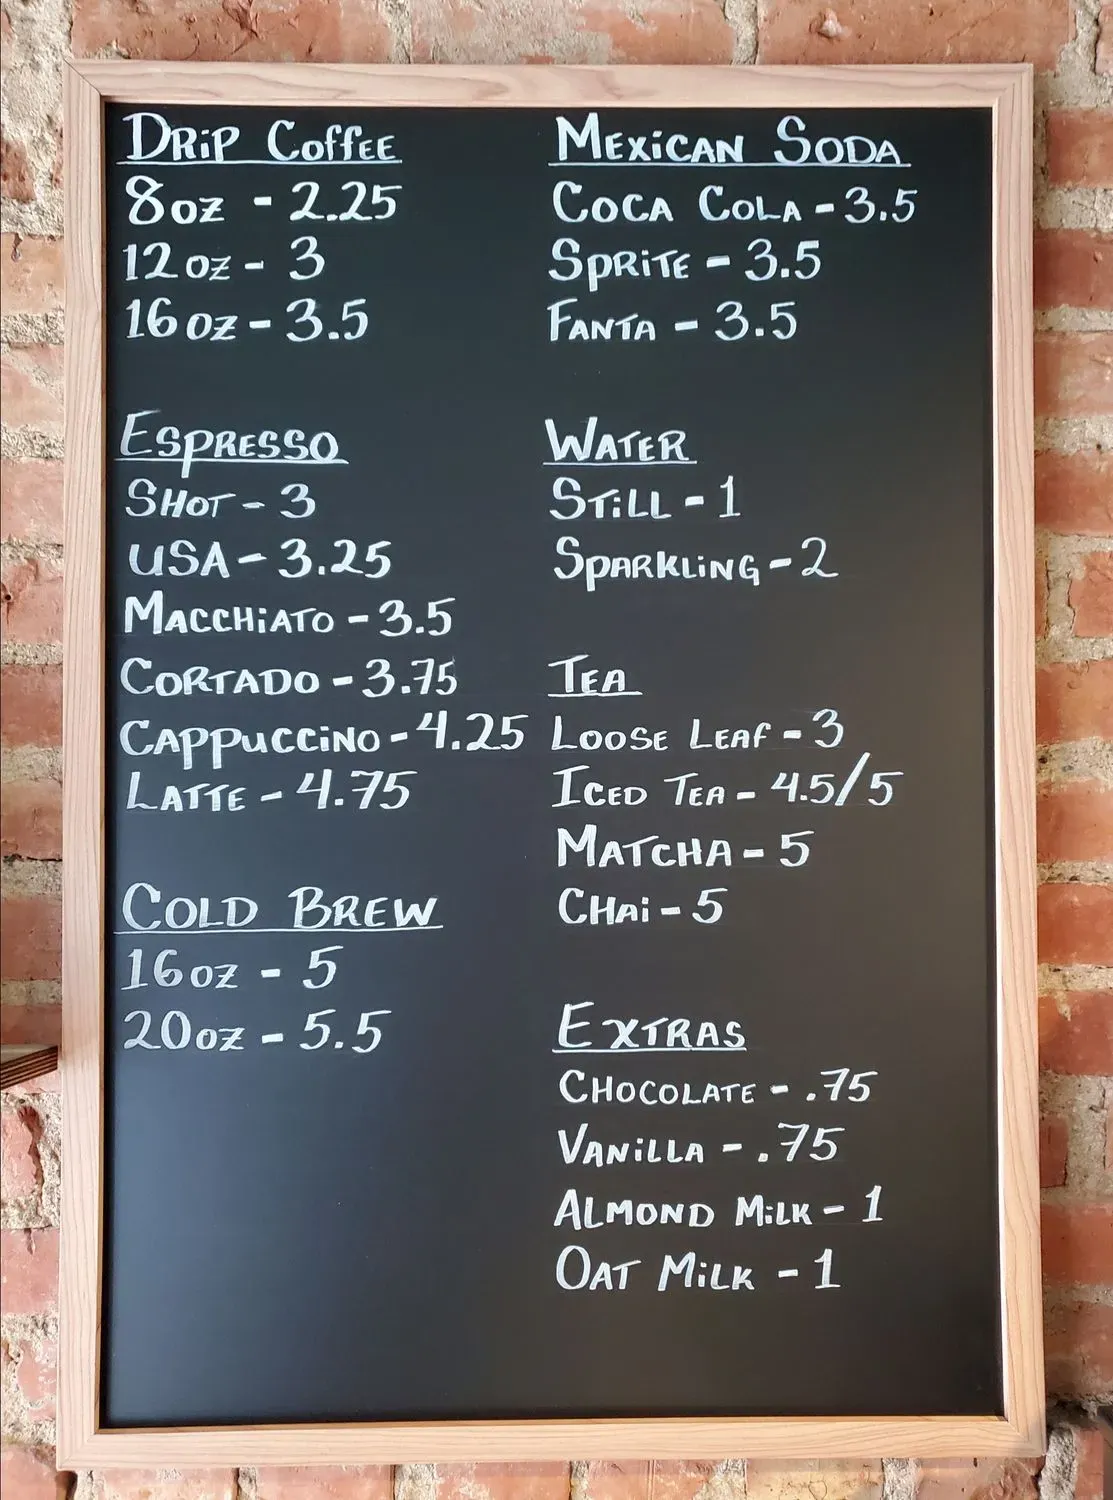 Drip Coffee
8oz - 2.25
12oz - 3
16oz - 3.5
Espresso
Shot - 3
USA - 3.25
Macchiato - 3.5
Cortado - 3.75
Cappuccino - 4.25
Latte - 4.75
Cold Brew
16oz - 5
20oz - 5.5
Mexican Soda
Coca Cola - 3.5
Sprite - 3.5
Fanta - 3.5
Water
Still - 1
Sparkling - 2
Tea
Loose Leaf - 3
Iced Tea - 4.5/5
Matcha - 5
Chai - 5
Extras
Chocolate - .75
Vanilla - .75
Almond Milk - 1
Oat Milk - 1